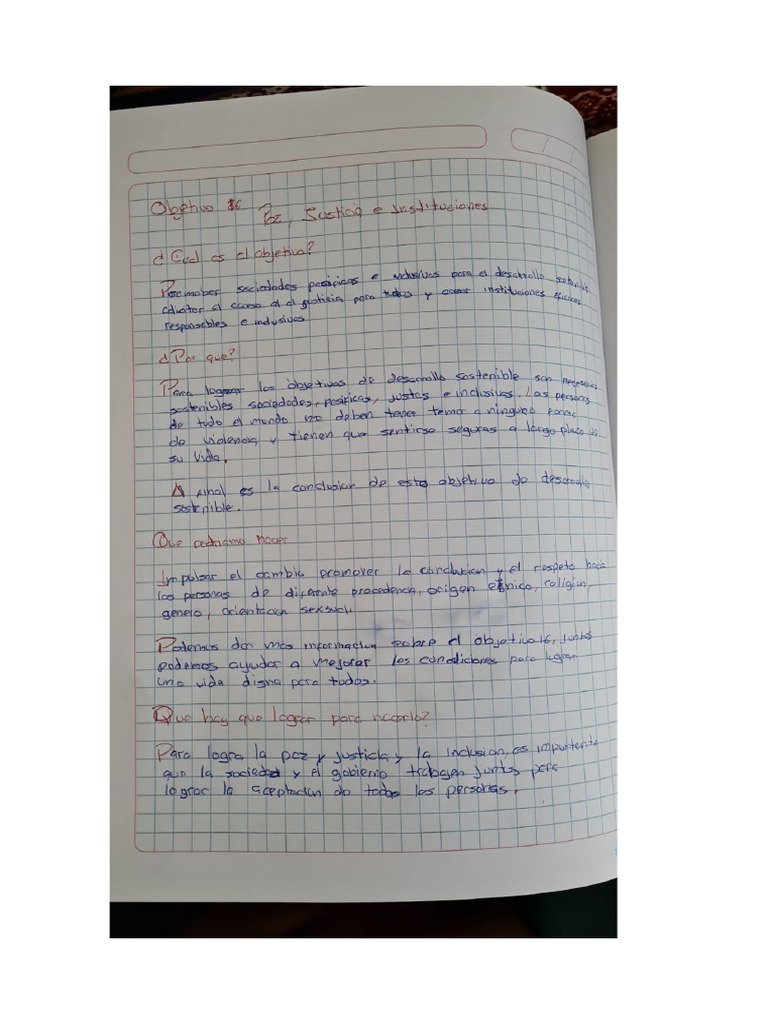 Objetivo 16 Paz, Justicia e Instituciones
¿Cual es el objetivo?
Promober sociedades pasificas e inclusivas para el desarrollo sostenible
al para todos y crear instituciones eficaces
responsables e inclusivas
¿Por que?
Para lograr los objetivos de desarrollo sostenible son necesarias
sostenibles sociedades, pasificas, justas e inclusivas. Las personas
de todo el mundo no deben tener temor a ninguna forma
de violencia y tienen que sentirse seguras a largo plazo
su vida.
A final es la conclusion de este objetivo de desarrollo
sostenible.
Que podriamo hacer
Impulsar el cambio promover la conclucion y el respeto hacia
las personas de diferente procedencia, origen etnico, religion,
genero, orientacion sexsual.
Podemos dar mas informacion sobre el objetivo 16, juntos
podemos ayudar a mejorar las condiciones para lograr
una vida digna para todos.
Que hay que lograr para hacerlo?
Para logra la paz y justicia y la inclusion, es importante
que la sociedad y el gobierno trabajen juntos para
lograr la aceptacion de todas las personas.